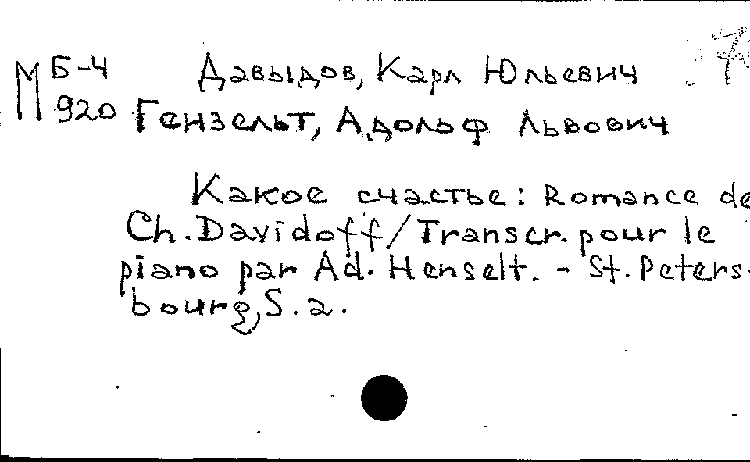 М Б-4 Давыдов, Карл Юльевич
920 Гензельт, Адольф Львович
Какое счастье: Romance de
Ch. Davidoff/Transcr. pour le
piano par Ad. Henselt. - St. Peters-
bourg, S. a.